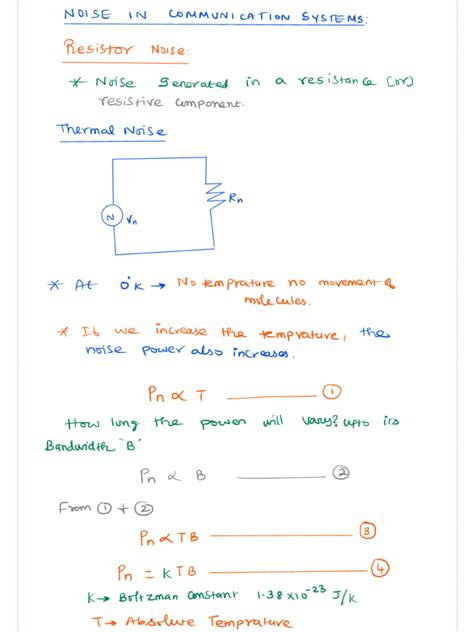 NOISE IN COMMUNICATION SYSTEMS:
Resistor Noise:
* Noise Generated in a resistance (or)
resistive component.
Thermal Noise
Rn
N Vn
* At 0°K → No temprature no movement of
molecules.
* If we increase the temprature, the
noise power also increases.
Pn ∝ T ——— ①
How long the power will vary? upto its
Bandwidth "B"
Pn ∝ B ——— ②
From ① + ②
Pn ∝ TB ——— ③
Pn = KTB ——— ④
K → Boltzman Constant 1.38 x10⁻²³ J/K
T → Absolute Temprature